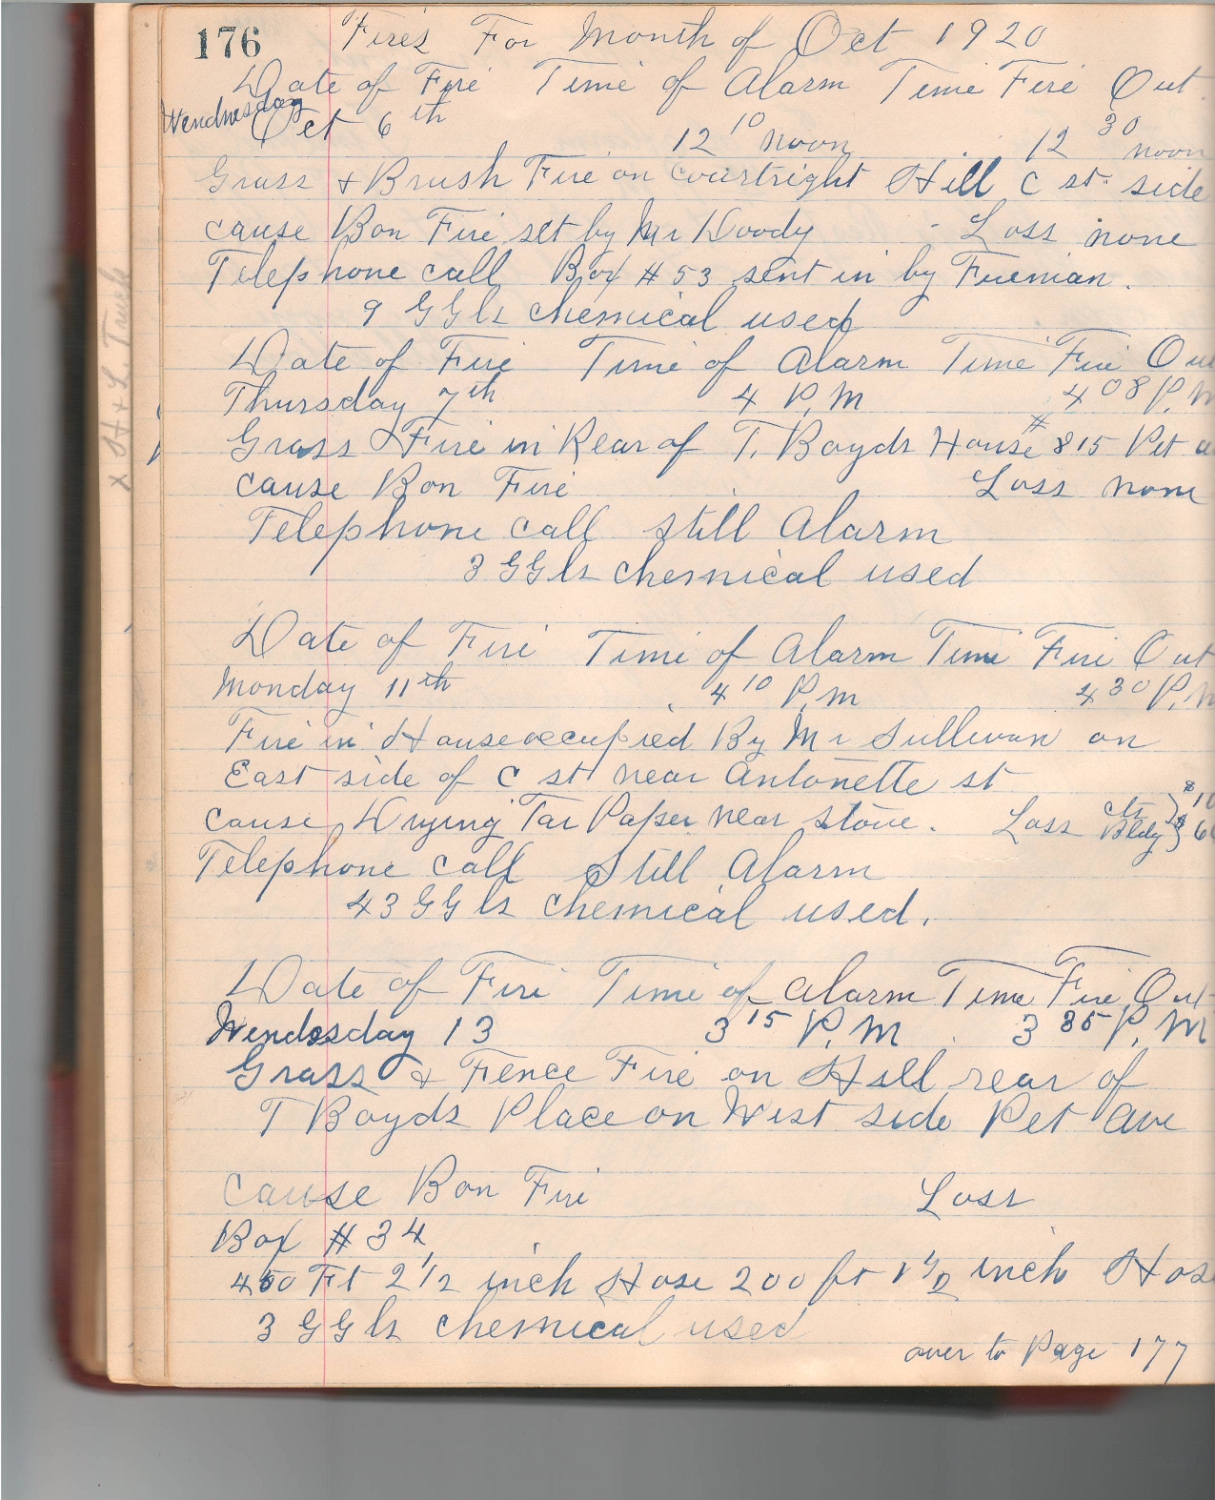 176 Fires For Month of Oct 1920
Date of Fire Time of Alarm Time Fire Out.
Wendnesday
Oct 6th 12 10 noon 12 30 noon
Grass & Brush Fire on Courtright Hill C st. side
cause Bon Fire set by Mr Doody - Loss none
Telephone call Box # 53 sent in by Fireman.
9 GGls chemical used
Date of Fire Time of Alarm Time Fire Ou
Thursday 7th 4 P.M 4 08 P.M
Grass Fire in Rear of T. Boyds House # 815 Pet a
cause Bon Fire Loss none
Telephone call still Alarm
3 GGls chemical used
Date of Fire Time of Alarm Time Fire Out
Monday 11th 4 10 P.M 4 30 P.M
Fire in House occupied By Mr Sullivan on
East side of C st near Antonette st
cause Drying Tar Paper near stove. Loss cts Bldg } $10 $6
Telephone call Still Alarm
43 GGls chemical used.
Date of Fire Time of Alarm Time Fire Out
Wendsday 13 3 15 P.M 3 35 P.M
Grass & Fence Fire on Hill rear of
T Boyds Place on West side Pet Ave
cause Bon Fire Loss
Box # 34
400 Ft 2 1/2 inch Hose 200 ft 1 1/2 inch Hos
3 GGls chemical used
over to Page 177
x H & L Truck